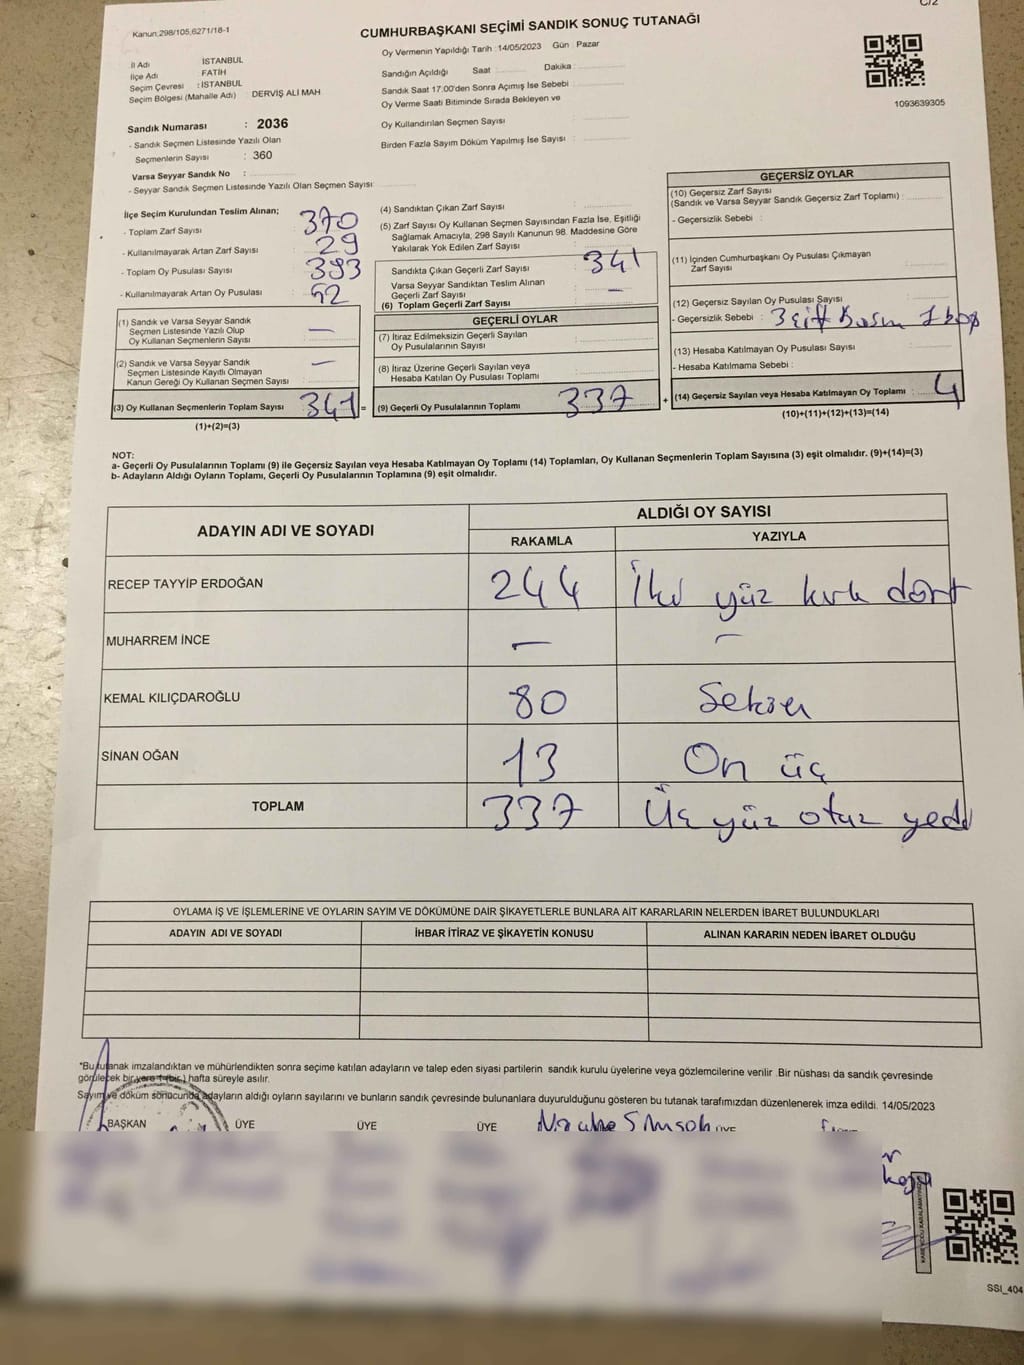 C/2
Kanun.298/105,6271/18-1
CUMHURBAŞKANI SEÇİMİ SANDIK SONUÇ TUTANAĞI
İl Adı : İSTANBUL
İlçe Adı : FATİH
Seçim Çevresi : İSTANBUL
Seçim Bölgesi (Mahalle Adı) : DERVİŞ ALİ MAH
Sandık Numarası : 2036
- Sandık Seçmen Listesinde Yazılı Olan
Seçmenlerin Sayısı : 360
Varsa Seyyar Sandık No :
- Seyyar Sandık Seçmen Listesinde Yazılı Olan Seçmen Sayısı:
Oy Vermenin Yapıldığı Tarih :14/05/2023 Gün : Pazar
Sandığın Açıldığı Saat : Dakika :
Sandık Saat 17:00'den Sonra Açımış İse Sebebi :
Oy Verme Saati Bitiminde Sırada Bekleyen ve
Oy Kullandırılan Seçmen Sayısı :
Birden Fazla Sayım Döküm Yapılmış İse Sayısı :
1093639305
İlçe Seçim Kurulundan Teslim Alınan;
- Toplam Zarf Sayısı : 370
- Kullanılmayarak Artan Zarf Sayısı : 29
- Toplam Oy Pusulası Sayısı : 393
- Kullanılmayarak Artan Oy Pusulası : 52
(1) Sandık ve Varsa Seyyar Sandık
Seçmen Listesinde Yazılı Olup
Oy Kullanan Seçmenlerin Sayısı : —
(2) Sandık ve Varsa Seyyar Sandık
Seçmen Listesinde Kayıtlı Olmayan
Kanun Gereği Oy Kullanan Seçmen Sayısı : —
(3) Oy Kullanan Seçmenlerin Toplam Sayısı : 341 =
(1)+(2)=(3)
(4) Sandıktan Çıkan Zarf Sayısı :
(5) Zarf Sayısı Oy Kullanan Seçmen Sayısından Fazla İse, Eşitliği
Sağlamak Amacıyla, 298 Sayılı Kanunun 98. Maddesine Göre
Yakılarak Yok Edilen Zarf Sayısı :
Sandıkta Çıkan Geçerli Zarf Sayısı : 341
Varsa Seyyar Sandıktan Teslim Alınan
Geçerli Zarf Sayısı : —
(6) Toplam Geçerli Zarf Sayısı :
GEÇERLİ OYLAR
(7) İtiraz Edilmeksizin Geçerli Sayılan
Oy Pusulalarının Sayısı :
(8) İtiraz Üzerine Geçerli Sayılan veya
Hesaba Katılan Oy Pusulası Toplamı :
(9) Geçerli Oy Pusulalarının Toplamı : 337 +
GEÇERSİZ OYLAR
(10) Geçersiz Zarf Sayısı
(Sandık ve Varsa Seyyar Sandık Geçersiz Zarf Toplamı) :
- Geçersizlik Sebebi :
(11) İçinden Cumhurbaşkanı Oy Pusulası Çıkmayan
Zarf Sayısı :
(12) Geçersiz Sayılan Oy Pusulası Sayısı :
- Geçersizlik Sebebi : 3 çift Basım 1 boş
(13) Hesaba Katılmayan Oy Pusulası Sayısı :
- Hesaba Katılmama Sebebi :
(14) Geçersiz Sayılan veya Hesaba Katılmayan Oy Toplamı : 4
(10)+(11)+(12)+(13)=(14)
NOT:
a- Geçerli Oy Pusulalarının Toplamı (9) ile Geçersiz Sayılan veya Hesaba Katılmayan Oy Toplamı (14) Toplamları, Oy Kullanan Seçmenlerin Toplam Sayısına (3) eşit olmalıdır. (9)+(14)=(3)
b- Adayların Aldığı Oyların Toplamı, Geçerli Oy Pusulalarının Toplamına (9) eşit olmalıdır.
ADAYIN ADI VE SOYADI
ALDIĞI OY SAYISI
RAKAMLA YAZIYLA
RECEP TAYYİP ERDOĞAN 244 İki yüz kırk dört
MUHARREM İNCE — —
KEMAL KILIÇDAROĞLU 80 Seksen
SİNAN OĞAN 13 On üç
TOPLAM 337 Üç yüz otuz yedi
OYLAMA İŞ VE İŞLEMLERİNE VE OYLARIN SAYIM VE DÖKÜMÜNE DAİR ŞİKAYETLERLE BUNLARA AİT KARARLARIN NELERDEN İBARET BULUNDUKLARI
ADAYIN ADI VE SOYADI İHBAR İTİRAZ VE ŞİKAYETİN KONUSU ALINAN KARARIN NEDEN İBARET OLDUĞU
*Bu tutanak imzalandıktan ve mühürlendikten sonra seçime katılan adayların ve talep eden siyasi partilerin sandık kurulu üyelerine veya gözlemcilerine verilir .Bir nüshası da sandık çevresinde
görülecek bir yere 1 (bir ) hafta süreyle asılır.
Sayım ve döküm sonucunda adayların aldığı oyların sayılarını ve bunların sandık çevresinde bulunanlara duyurulduğunu gösteren bu tutanak tarafımızdan düzenlenerek imza edildi. 14/05/2023
BAŞKAN ÜYE ÜYE ÜYE ÜYE
SSI_404